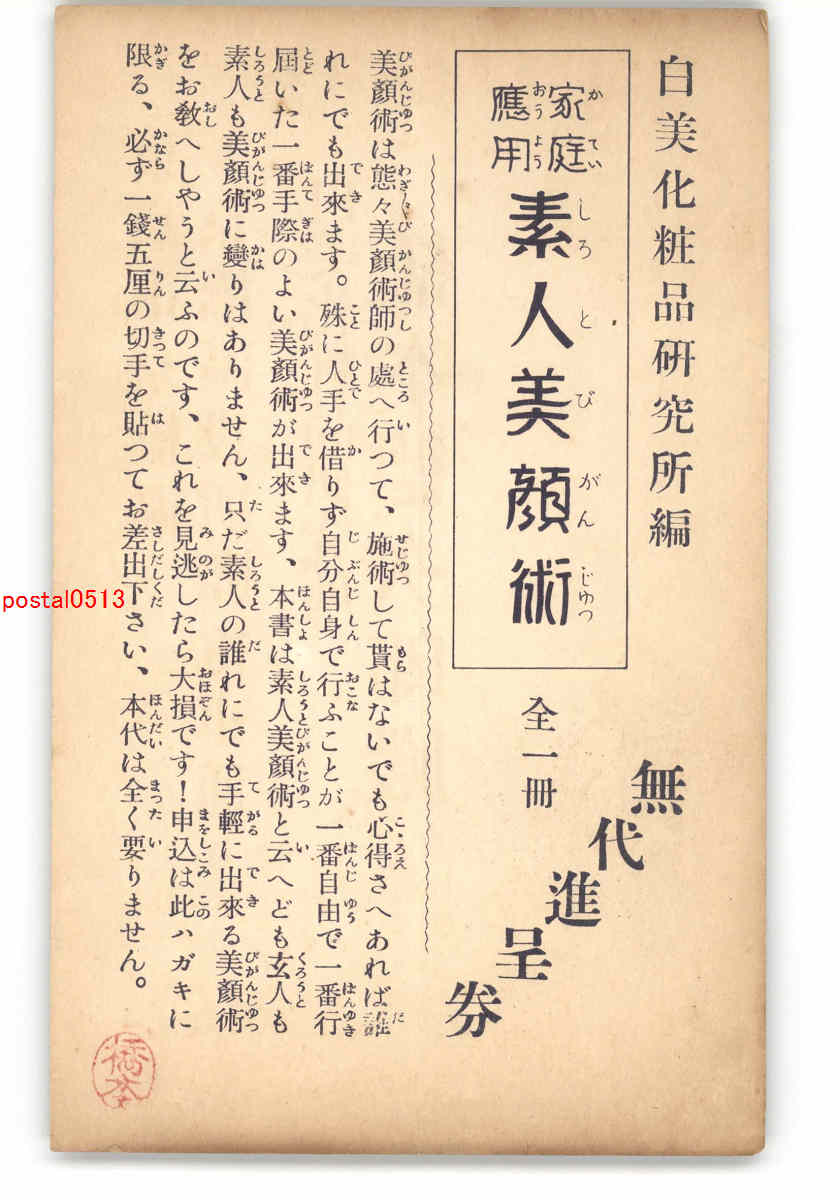 白美化粧品研究所編
家庭應用
素人美顏術
全一冊
無代進呈券
美顏術は態々美顏術師の處へ行つて、施術して貰はないでも心得さへあれば誰
れにでも出來ます。殊に人手を借りず自分自身で行ふことが一番自由で一番行
屆いた一番手際のよい美顏術が出來ます、本書は素人美顏術と云へども玄人も
素人も美顏術に變りはありません、只だ素人の誰れにでも手輕に出來る美顏術
をお敎へしやうと云ふのです、これを見逃したら大損です！申込は此ハガキに
限る、必ず一錢五厘の切手を貼つてお差出下さい、本代は全く要りません。
postal0513